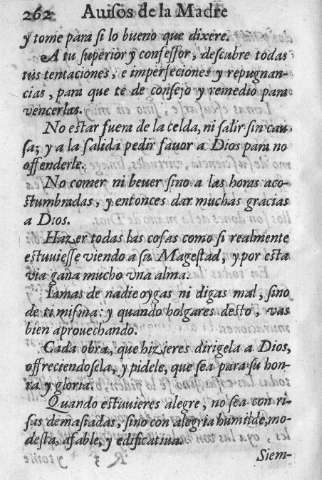 262 Avisos de la Madre
y tome para si lo bueno que dixere.
A tu superior y confessor, descubre todas
tus tentaciones, e imperfeciones y repugnan-
cias, para que te de consejo y remedio para
vencerlas.
No estar fuera de la celda, ni salir sin cau-
sa; y a la salida pedir favor a Dios para no
offenderle.
No comer ni bever sino a las horas aco-
stumbradas, y entonces dar muchas gracias
a Dios.
Hazer todas las cosas como si realmente
estuuiesse viendo a su Magestad, y por esta
via gana mucho vna alma.
Iamas de nadie oygas ni digas mal, sino
de ti misma: y quando holgares desto, vas
bien aprouechando.
Cada obra, que hizieres dirigela a Dios,
offreciendosela, y pidele, que sea para su hon-
ra y gloria.
Quando estuuieres alegre, no sea con ri-
sas demasiadas, sino con alegria humilde, mo-
desta, afable, y edificatiua.
Siem-